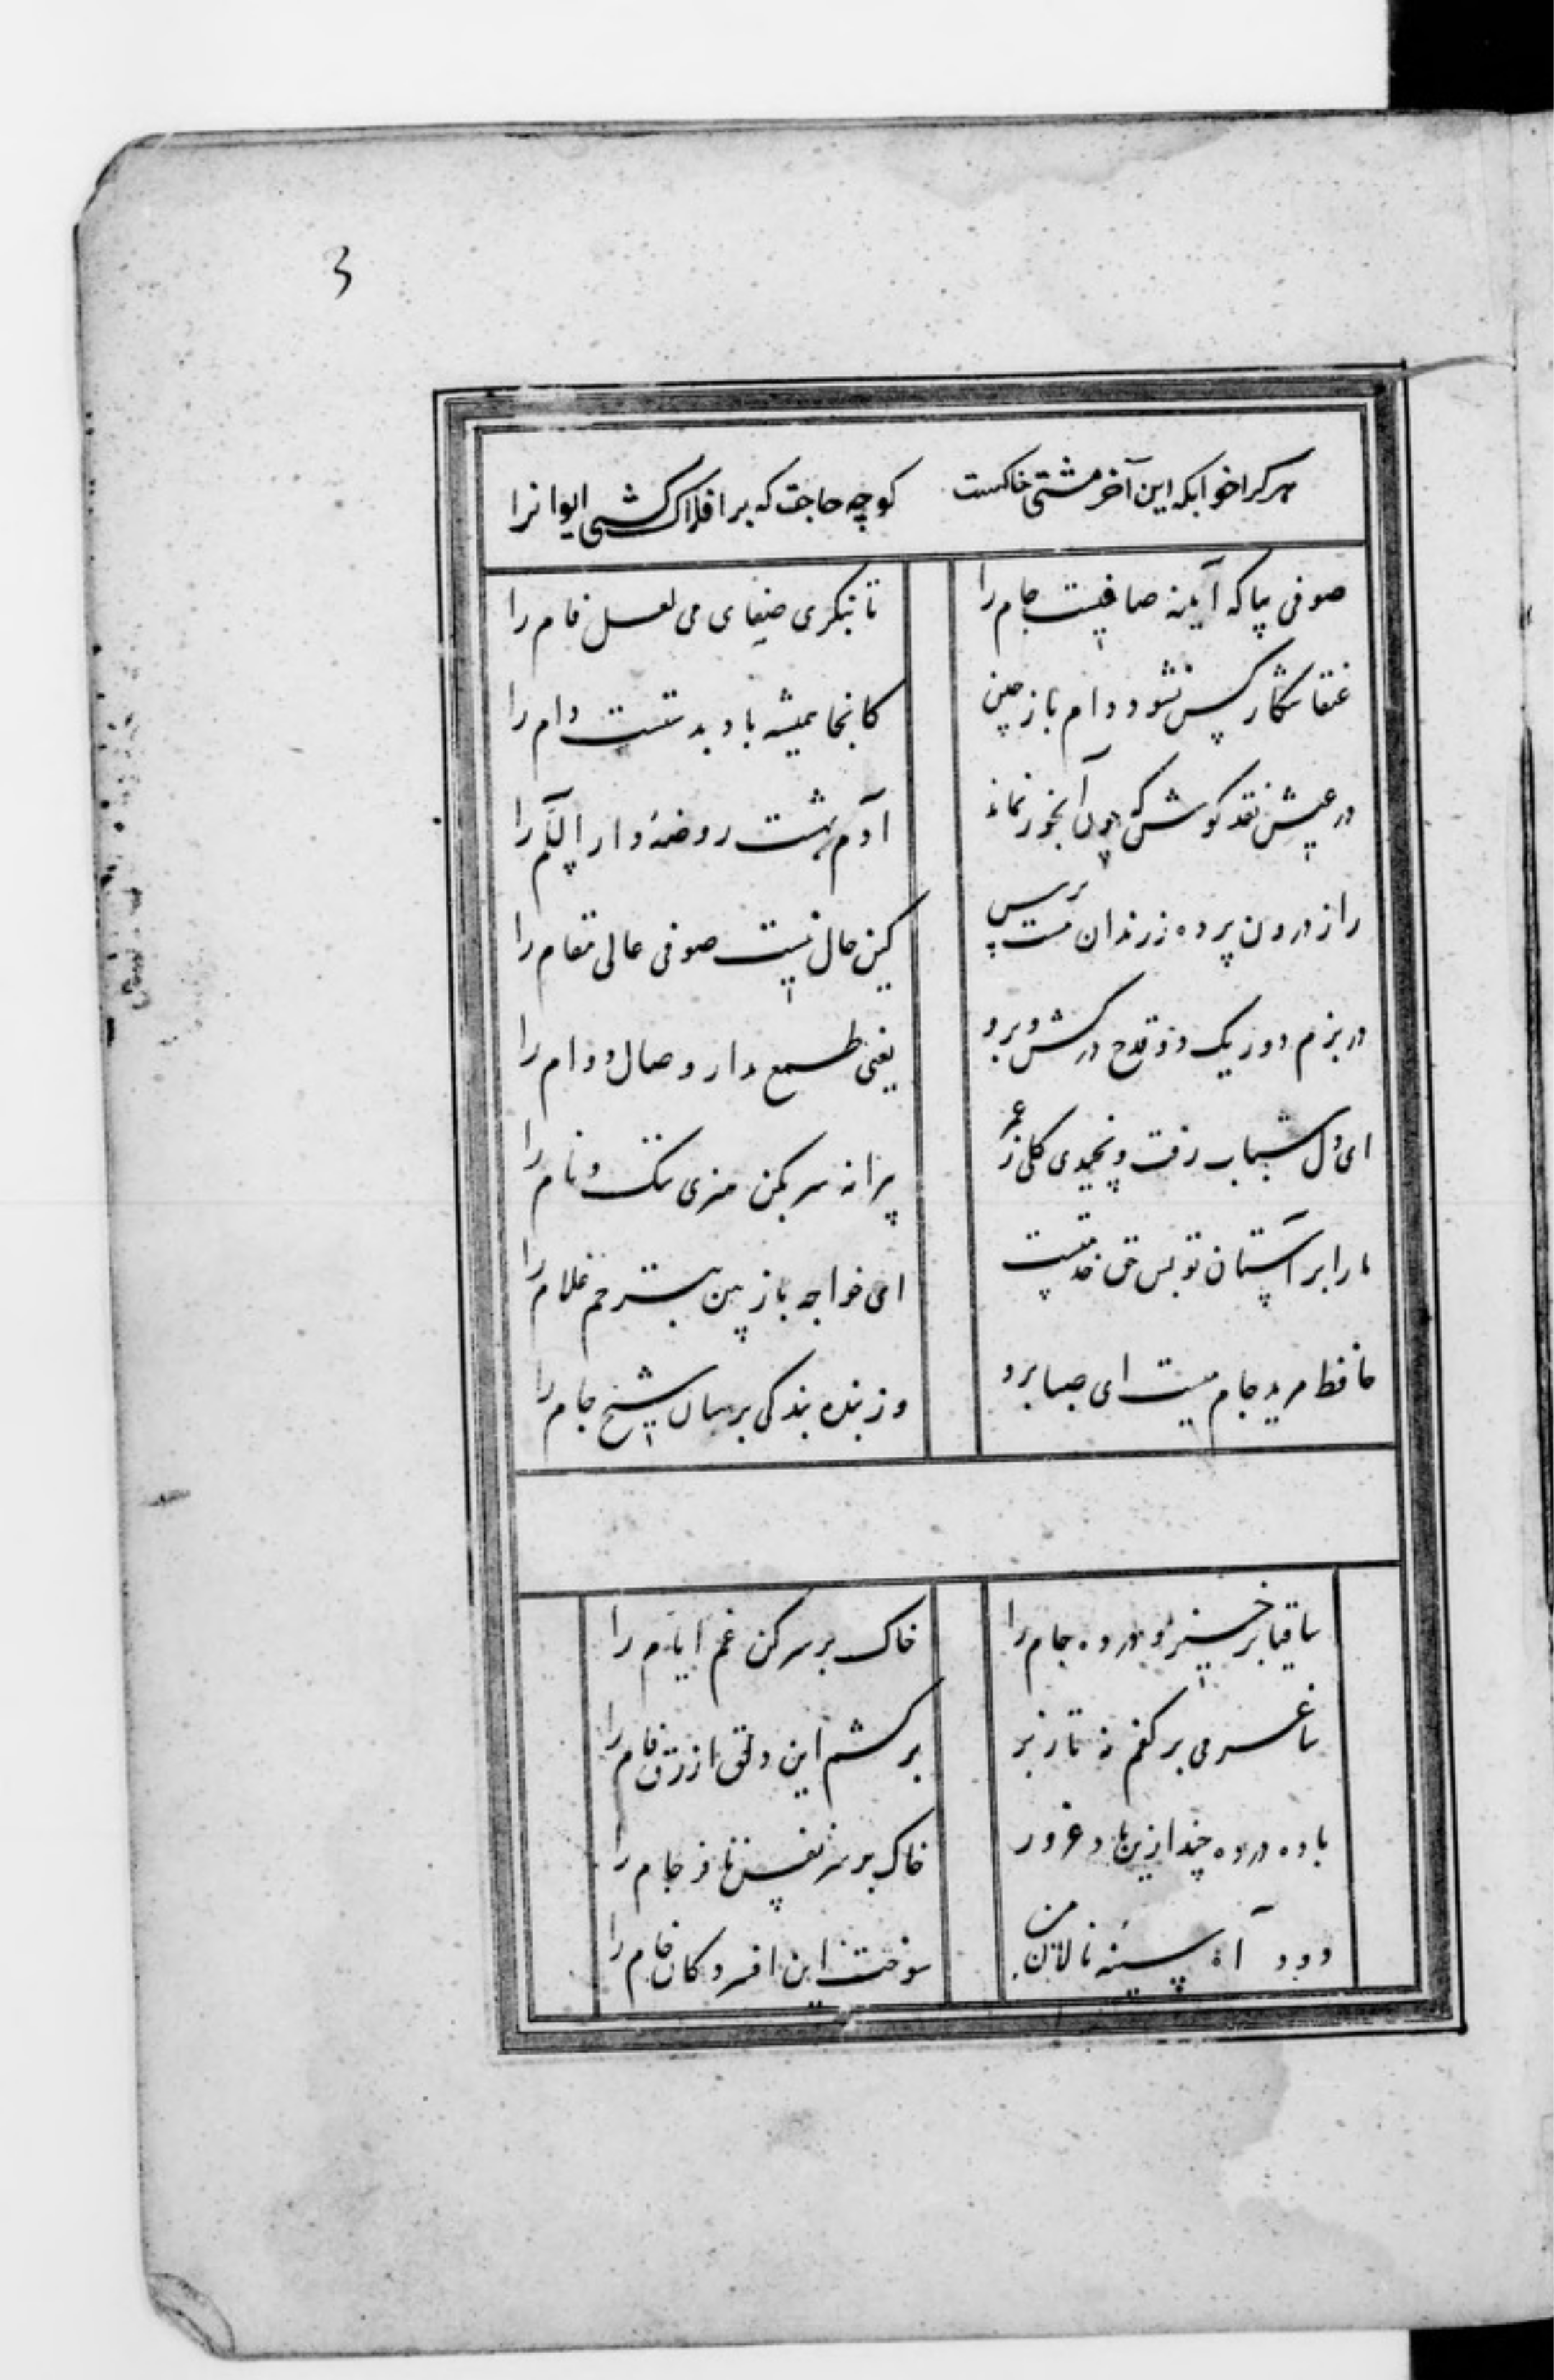 3
هرکرا خوابکه این آخر مشتی خاکست کو چه حاجت که بر افلاک کشی ایوانرا
صوفی بیا که آینه صافیست جام را تا بنکری صفای می لعل فام را
عنقا شکار کس نشود دام باز چین کانجا همیشه باد بدستست دام را
در عیش نقد کوش که چون آبخور نماند آدم بهشت روضهٔ دار السلام را
راز درون پرده ز رندان مست پرس کین حال نیست صوفی عالی مقام را
در بزم دور یک دو قدح درکش و برو یعنی طمع مدار وصال دوام را
ای دل شباب رفت و نچیدی کلی ز عمر پیرانه سر بکن هنری ننک و نام را
ما را بر آستان تو بس حق خدمتست ای خواجه باز بین بترحم غلام را
حافظ مرید جام میست ای صبا برو وز بنده بندکی برسان شیخ جام را
ساقیا برخیز و درده جام را خاک بر سر کن غم ایام را
ساغر می بر کفم نه تا ز بر برکشم این دلق ازرق فام را
باده درده چند ازین باد غرور خاک بر سر نفس نافرجام را
دود آه سینه نالان من سوخت این افسردکان خام را